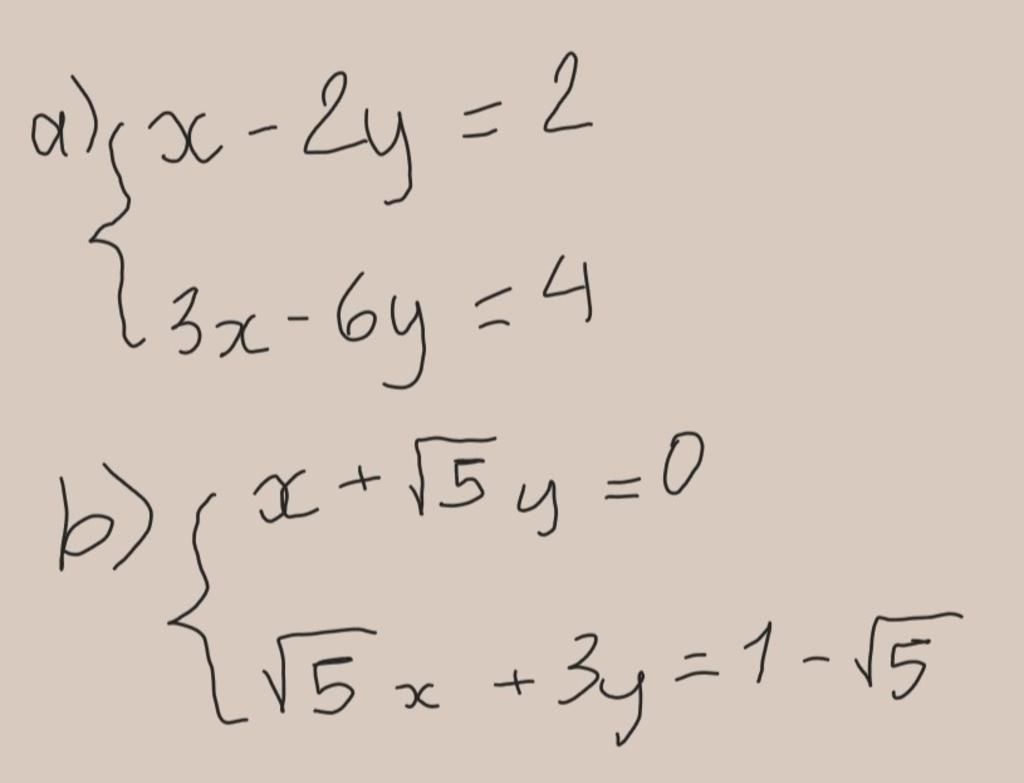 a) { x - 2y = 2
3x - 6y = 4
b) { x + √5 y = 0
√5 x + 3y = 1 - √5